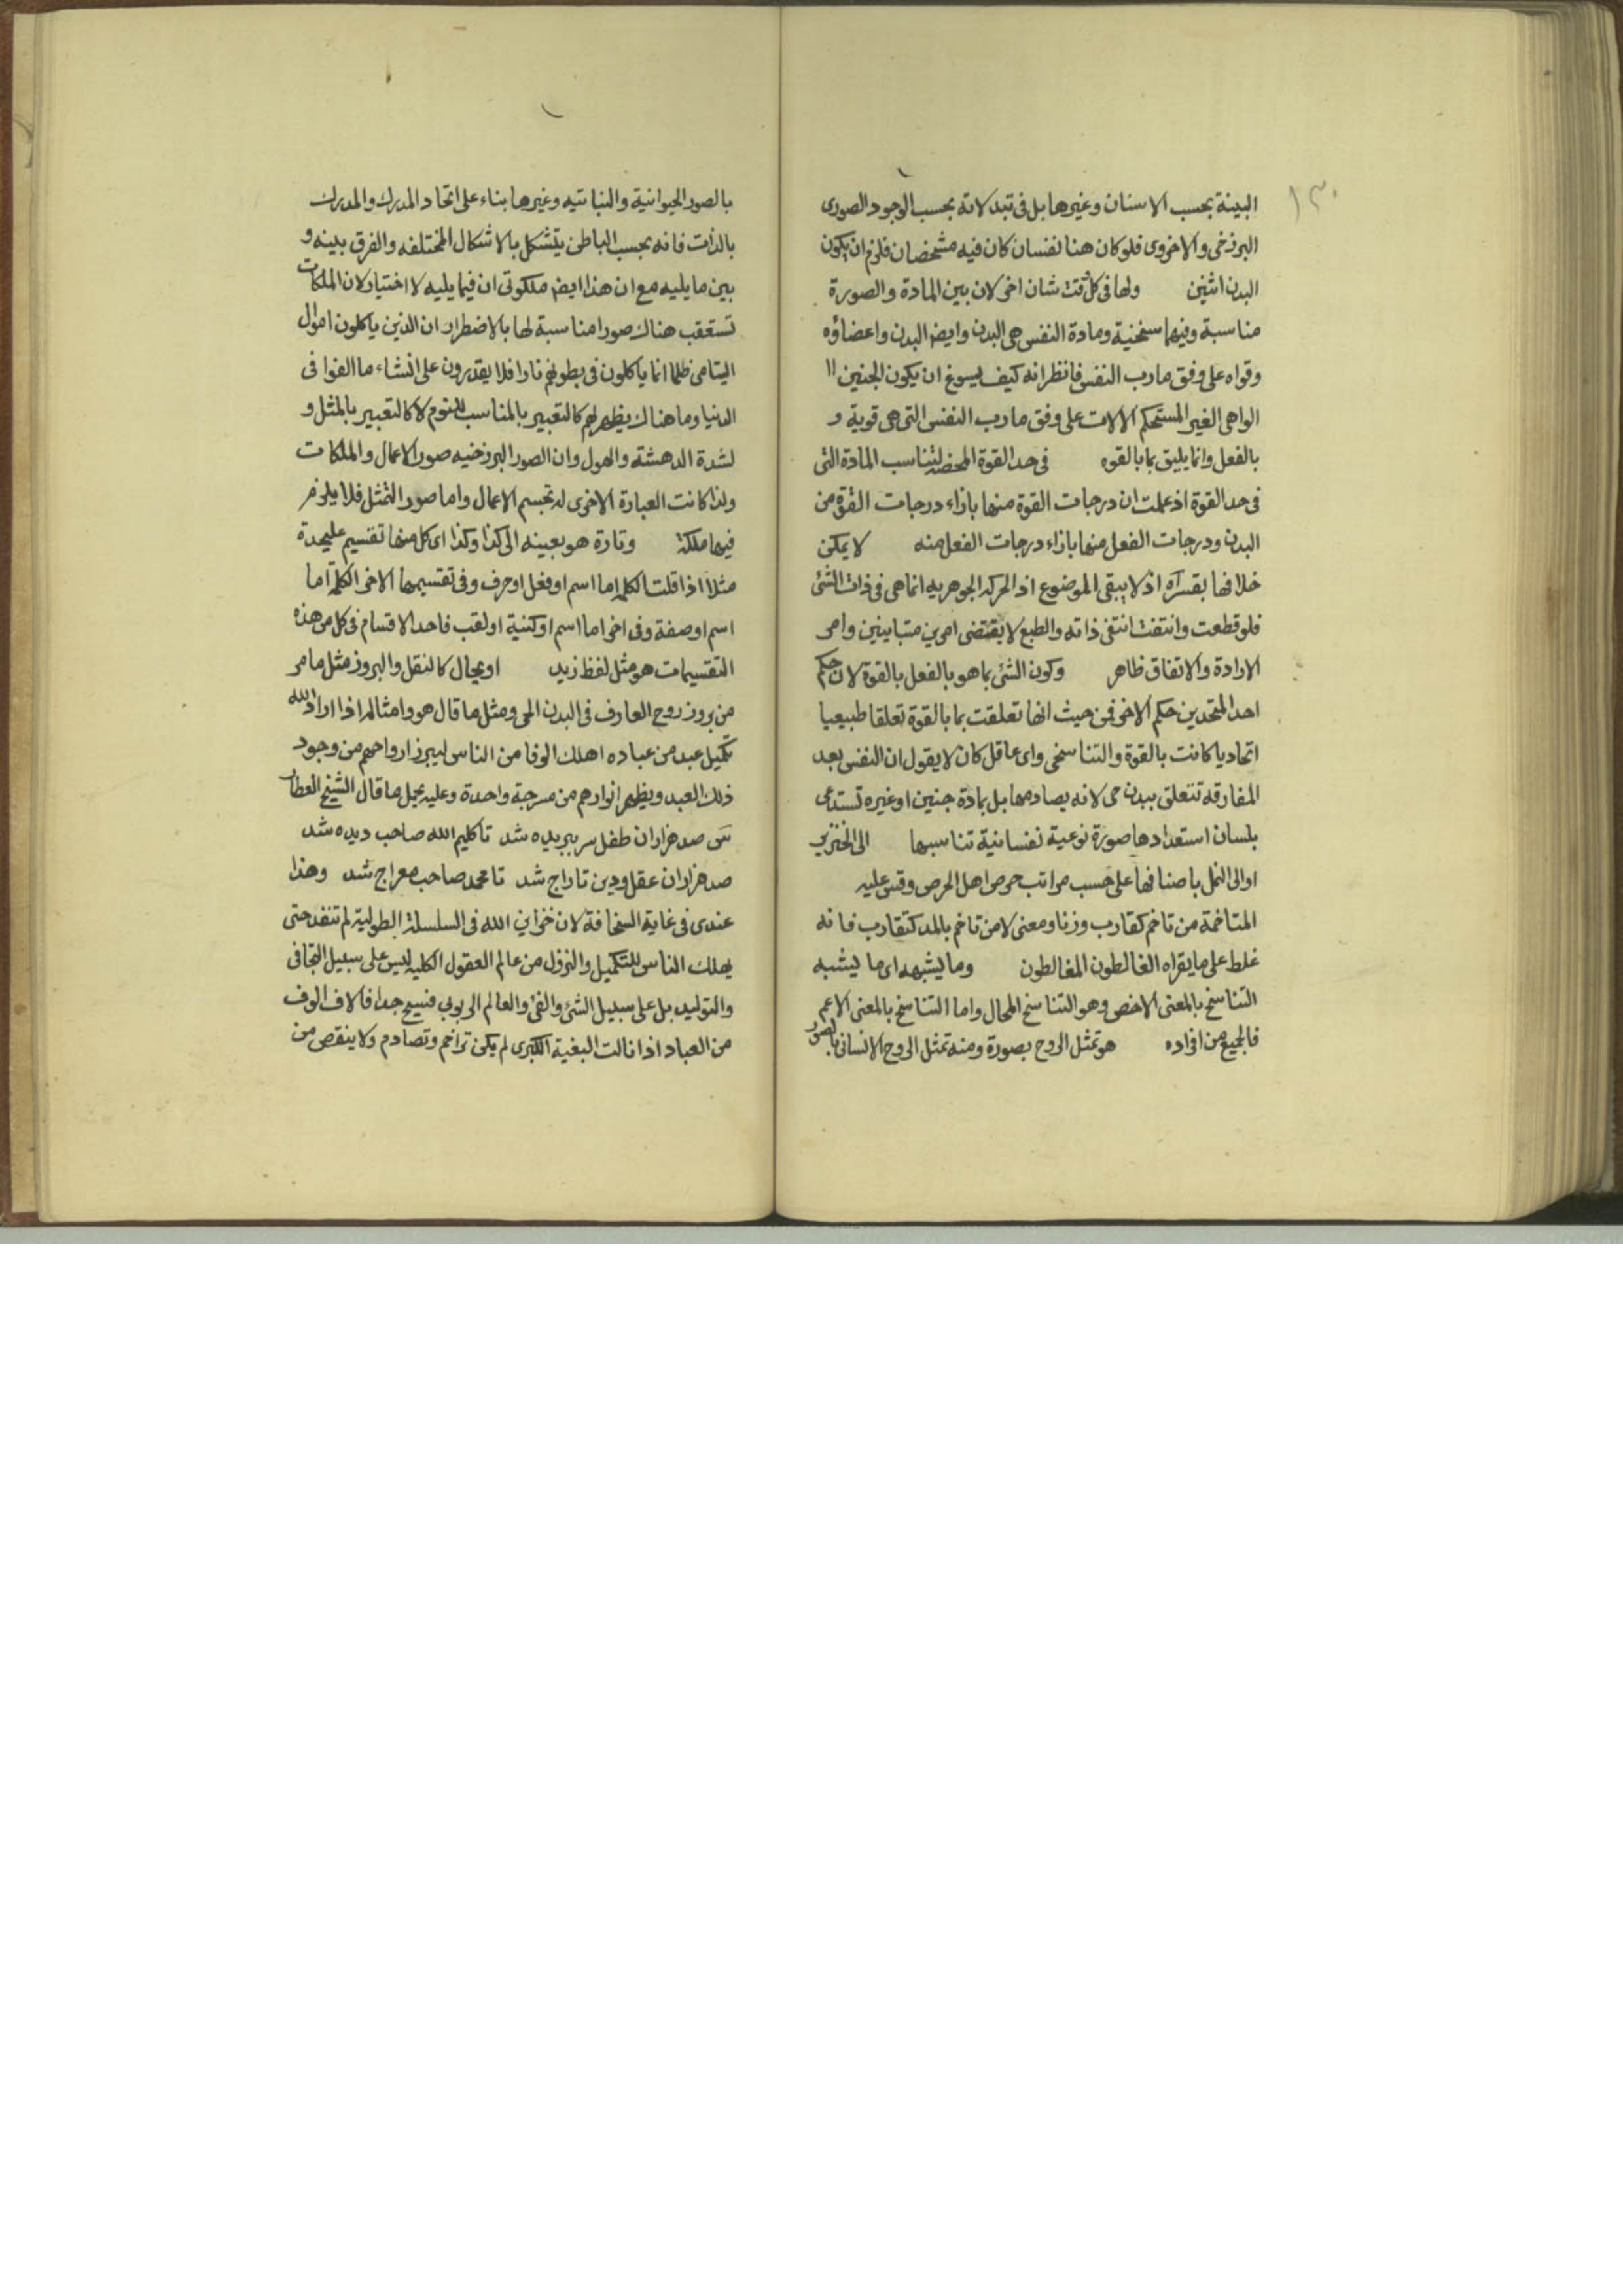 ١٣٠
البينة بحسب الاسنان وغيرها بل فى تبدلاته بحسب الوجود الصورى
البرزخى والاخروى فلو كان هنا نفسان كان فيه مشخصان فلزم ان يكون
البدن اثنين ولها فى كل وقت شان اخر لان بين المادة والصورة
مناسبة وفيهما سنخية ومادة النفس هى البدن وايض البدن واعضاؤه
وقواه على وفق مارب النفس فانظر انه كيف يسوغ ان يكون الجنين
الواهى الغير المستحكم الالات على وفق مارب النفس التى هى قوية و
بالفعل وانما يليق بما بالقوه فى حد القوة المحضه لتناسب المادة التى
فى حد القوة اذ علمت ان درجات القوة منها بازاء درجات القوة من
البدن ودرجات الفعل منها بازاء درجات الفعل منه لا يمكن
خلافها بقسر اه اذ لا يبقى الموضوع اذ الحركه الجوهريه انما هى فى ذات الشئ
فلو قطعت وانتفت انتفى ذاته والطبع لا يقتضى امرين متباينين وامر
الارادة والاتفاق ظاهر وكون الشئ بما هو بالفعل بالقوة لان حكم
احد المتحدين حكم الاخر فمن حيث انها تعلقت بما بالقوة تعلقا طبيعيا
اتحاديا كانت بالقوة والتناسخى واى عاقل كان لا يقول ان النفس بعد
المفارقه تتعلق ببدن حى لانه يصادمها بل بمادة جنين اوغيره تستدعى
بلسان استعدادها صورة نوعية نفسانية تناسبها الى الخنزير
اوالى النمل باصنافها على حسب مراتب حرص اهل الحرص وقس عليه
المتاخمة من تاخم كتقارب وزنا ومعنى لا من تاخم بالمد كتقارب فانه
غلط على ما يقراه الغالطون المغالطون وما يشبهه اى ما يشبه
التناسخ بالمعنى الاخص وهو التناسخ المحال واما التناسخ بالمعنى الاعم
فالجميع من افراده هو تمثل الروح بصورة ومنه تمثل الروح الانسانى بالصور
بالصور الحيوانية والنباتيه وغيرها بناء على اتحاد المدرك والمدرك
بالذات فانه بحسب الباطن يتشكل بالاشكال المختلفه والفرق بينه و
بين ما يليه مع ان هذا ايض ملكوتى ان فيما يليه لا اختيار لان الملكات
تستعقب هناك صورا مناسبة لها بالاضطرار ان الذين ياكلون اموال
اليتامى ظلما انما ياكلون فى بطونهم نارا فلا يقدرون على انشاء ما الفوا فى
الدنيا وما هناك يظهر لهم كالتعبير بالمناسب للنوم لا كالتعبير بالمثل و
لشدة الدهشته والهول وان الصور البرزخيه صور الاعمال والملكات
ولذا كانت العبارة الاخرى له تجسم الاعمال واما صور التمثل فلا يلزم
فيها ملكة وتارة هو بعينه الى كذا وكذا اى كل منها تقسيم عليحدة
مثلا اذا قلت الكلمه اما اسم او فعل او حرف وفى تقسيمها الاخر الكلمه اما
اسم او صفة وفى اخر اما اسم او كنية او لقب فاحد الاقسام فى كل من هذه
التقسيمات هو مثل لفظ زيد او بحال كالنقل والبروز مثل ما مر
من بروز روح العارف فى البدن الحى ومثل ما قال هو وامثاله اذا اراد الله
تكميل عبد من عباده اهلك الوفا من الناس ليبرز ارواحهم من وجود
ذلك العبد ويظهر انوارهم من مسرجة واحدة وعليه يحمل ما قال الشيخ العطار
صد هزاران طفل سر ببريده شد تا كليم الله صاحب ديده شد
صد هزاران عقل ودين تاراج شد تا محمد صاحب معراج شد وهذا
عندى فى غاية السخافة لان خزاين الله فى السلسلة الطولية لم تنفد حتى
يهلك الناس للتكميل والنزول من عالم العقول الكليه ليس على سبيل التجافى
والتوليد بل على سبيل الشئ والفئ والعالم الربوبى فسيح جدا فالاف الوف
من العباد اذا نالت البغية الكبرى لم يكن تزاحم وتصادم ولا ينقص من